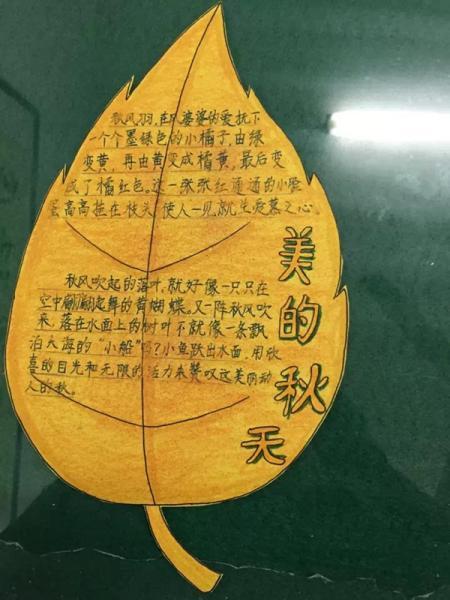 秋风羽,在风婆婆的爱抚下
一个个墨绿色的小橘子,由绿
变黄,再由黄变成橘黄,最后变
成了橘红色。这一张张红通通的小脸
蛋高高挂在枝头,使人一见就生爱慕之心。
秋风吹起的落叶,就好像一只只在
空中翩翩起舞的黄蝴蝶。又一阵秋风吹
来,落在水面上的树叶不就像一条飘
泊大海的“小船”吗?小鱼跃出水面,用欣
喜的目光和无限的活力来赞叹这美丽动
人的秋。
美的秋天